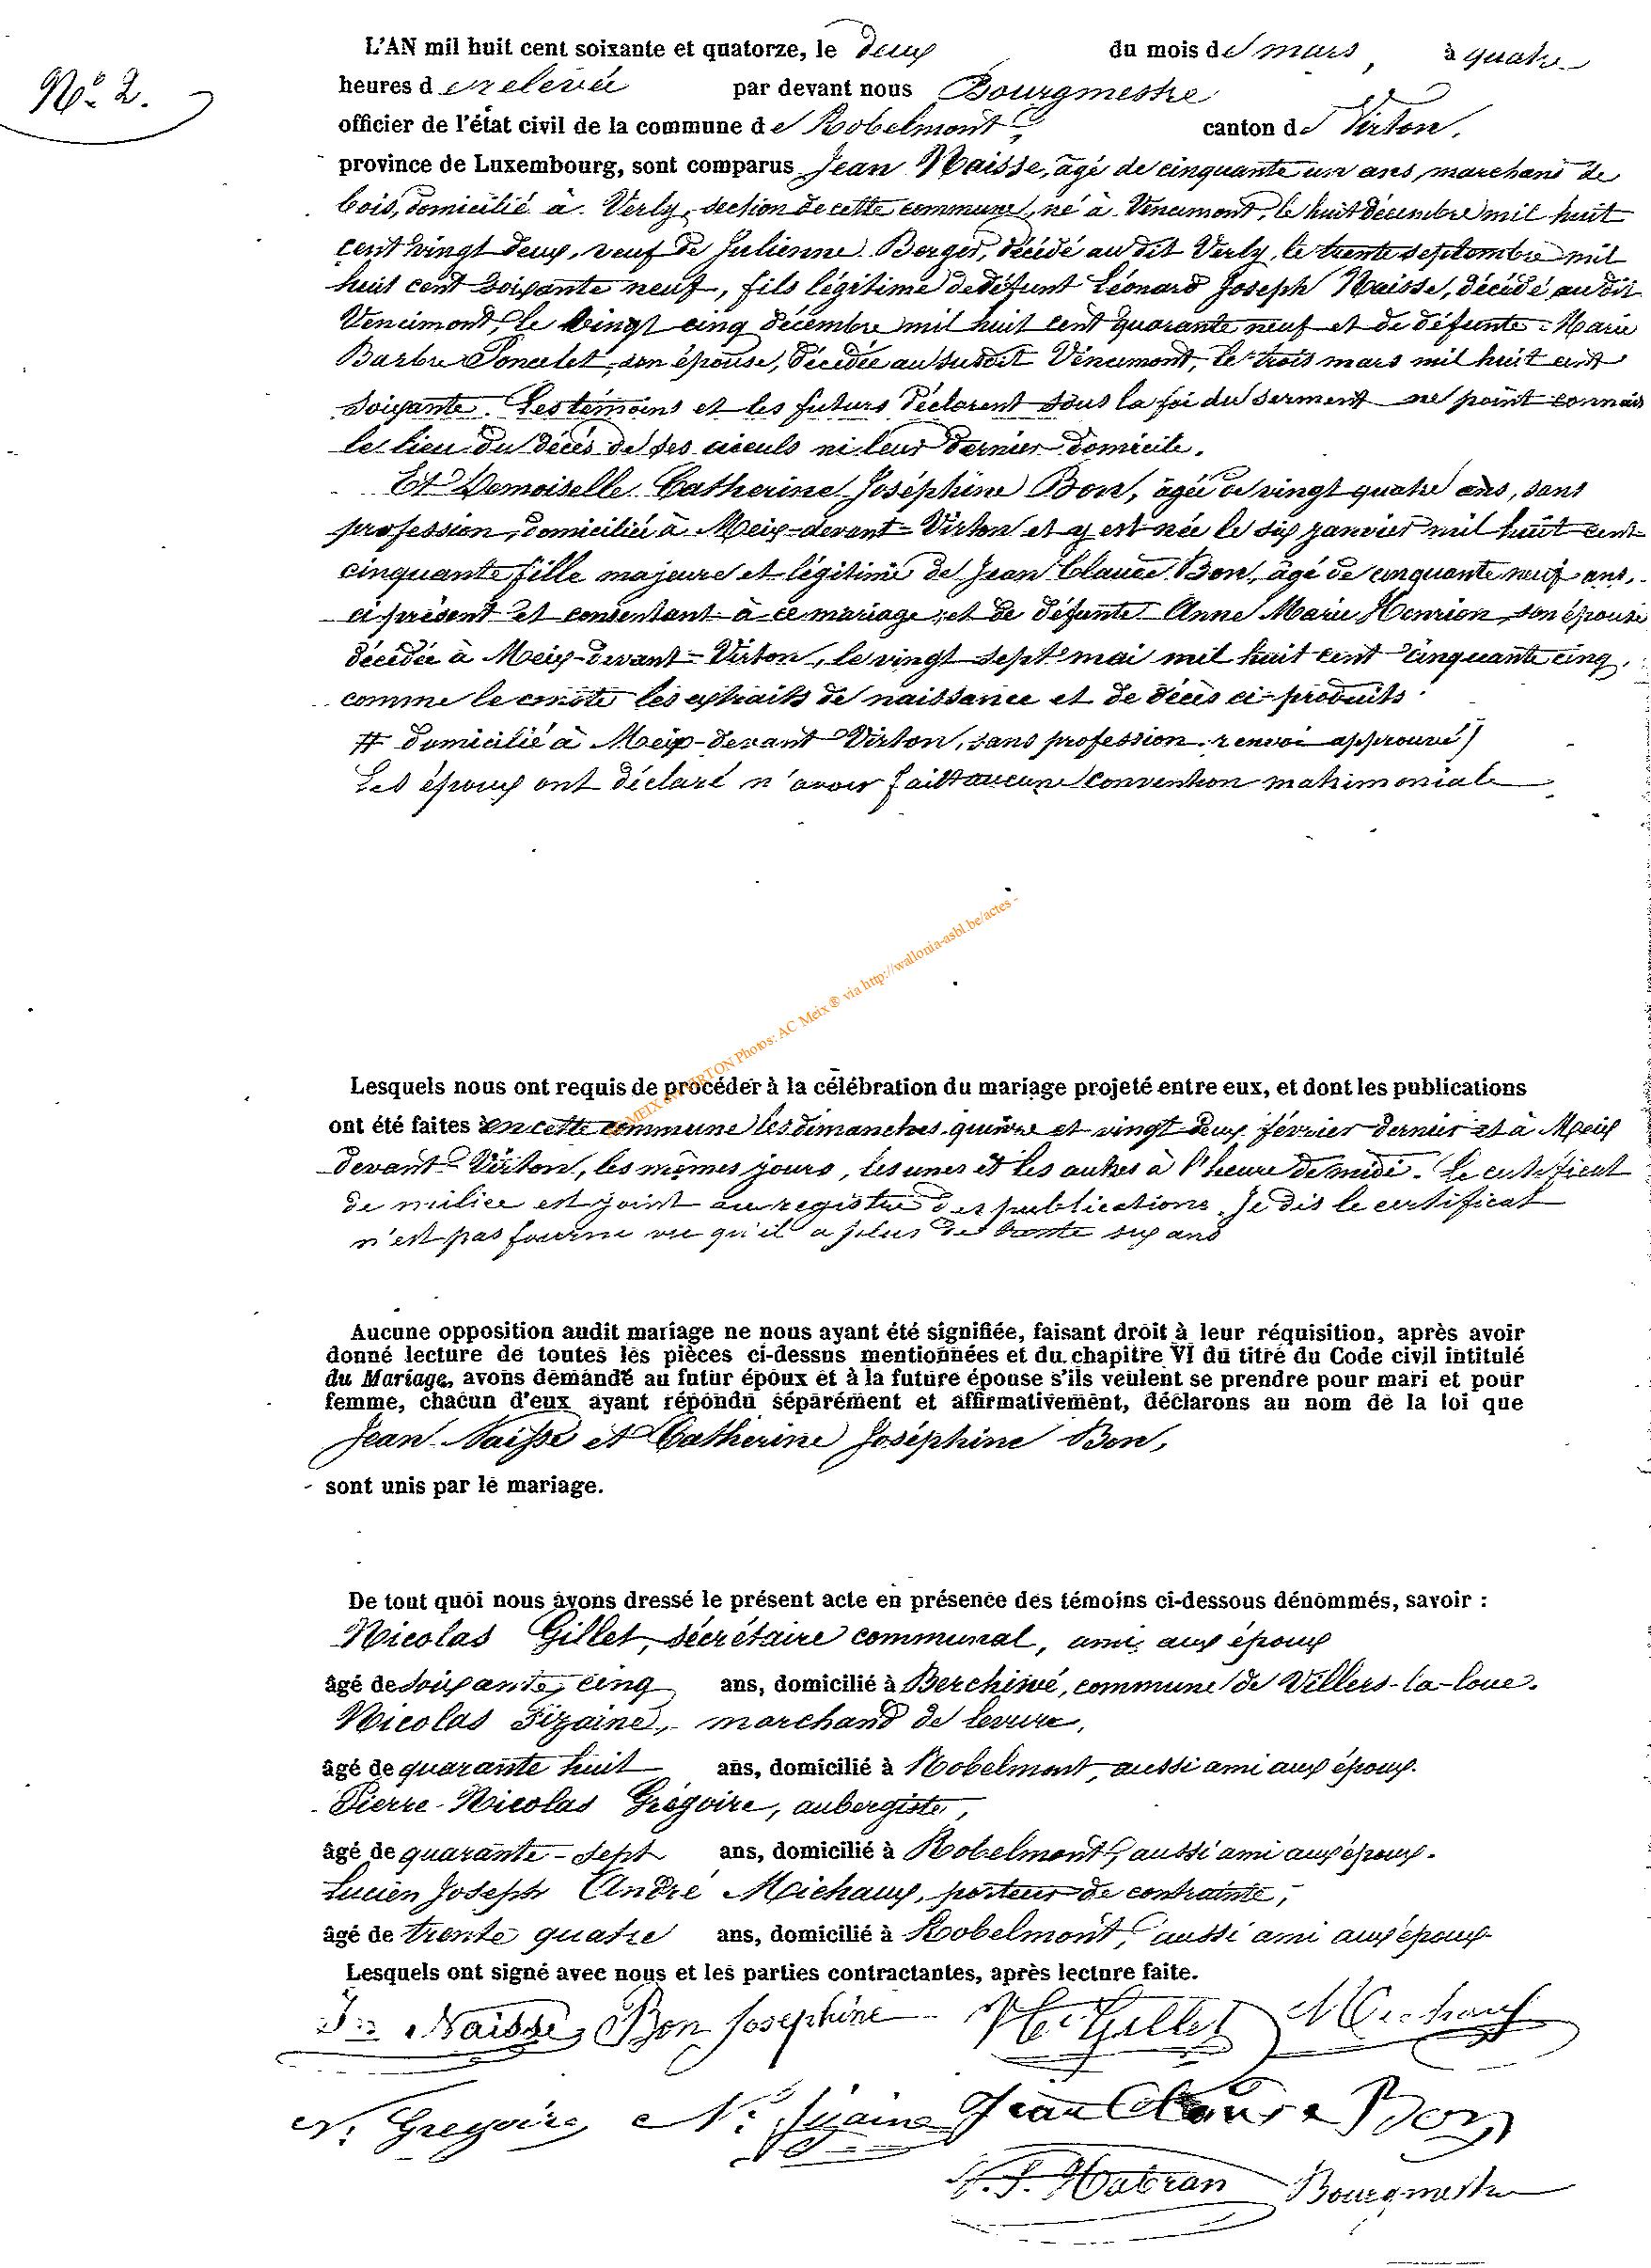 N°. 2.
L'AN mil huit cent soixante et quatorze, le deux du mois de mars, à quatre
heures de relevée par devant nous Bourgmestre
officier de l'état civil de la commune de Robelmont, canton de Virton,
province de Luxembourg, sont comparus Jean Naisse, âgé de cinquante un ans, marchand de
bois, domicilié à Verly, section de cette commune, né à Vencimont, le huit décembre mil huit
cent vingt deux, veuf de Julienne Berger, décédé au dit Verly, le trente septembre mil
huit cent soixante neuf, fils légitime de défunt Léonard Joseph Naisse, décédé au dit
Vencimont, le vingt cinq décembre mil huit cent quarante neuf et de défunte Marie
Barbe Poncelet, son épouse, décédée au susdit Vencimont, le trois mars mil huit cent
soixante. Les témoins et les futurs déclarent sous la foi du serment ne point connais
le lieu du décès de ses aïeuls ni leur dernier domicile.
Et Demoiselle Catherine Joséphine Bon, âgée de vingt quatre ans, sans
profession, domiciliée à Meix-devant-Virton et y est née le six janvier mil huit cent
cinquante, fille majeure et légitime de Jean Claude Bon, âgé de cinquante neuf ans,
ci présent et consentant à ce mariage, et de défunte Anne Marie Henrion, son épouse
décédée à Meix-devant-Virton, le vingt sept mai mil huit cent cinquante cinq,
comme le conste les extraits de naissance et de décès ci-produits.
# domicilié à Meix-devant Virton, sans profession. renvoi approuvé)
Les époux ont déclaré n'avoir fait aucune convention matrimoniale
MEIX dvt VIRTON Photos: AC Meix ® via http://wallonia-asbl.be/actes -
Lesquels nous ont requis de procéder à la célébration du mariage projeté entre eux, et dont les publications
ont été faites en cette commune les dimanches quinze et vingt deux février dernier et à Meix
devant-Virton, les mêmes jours, les unes et les autres à l'heure de midi. Le certificat
de milice est joint au registre des publications. Je dis le certificat
n'est pas fourni vu qu'il a plus de trente six ans
Aucune opposition audit mariage ne nous ayant été signifiée, faisant droit à leur réquisition, après avoir
donné lecture de toutes les pièces ci-dessus mentionnées et du chapitre VI du titre du Code civil intitulé
du Mariage, avons demandé au futur époux et à la future épouse s'ils veulent se prendre pour mari et pour
femme, chacun d'eux ayant répondu séparément et affirmativement, déclarons au nom de la loi que
Jean Naisse et Catherine Joséphine Bon,
sont unis par le mariage.
De tout quoi nous avons dressé le présent acte en présence des témoins ci-dessous dénommés, savoir :
Nicolas Gillet, secrétaire communal, ami aux époux
âgé de soixante cinq ans, domicilié à Berchiwé, commune de Villers-la-loue.
Nicolas Fizaine, marchand de levure,
âgé de quarante huit ans, domicilié à Robelmont, aussi ami aux époux.
Pierre-Nicolas Grégoire, aubergiste,
âgé de quarante-sept ans, domicilié à Robelmont, aussi ami aux époux.
Lucien Joseph André Michaux, porteur de contrainte,
âgé de trente quatre ans, domicilié à Robelmont, aussi ami aux époux
Lesquels ont signé avec nous et les parties contractantes, après lecture faite.
Jn Naisse Bon Josephine Gillet Michaux
N. Gregoire Ns. Fizaine Jean Claude Bon
Bourgmestre